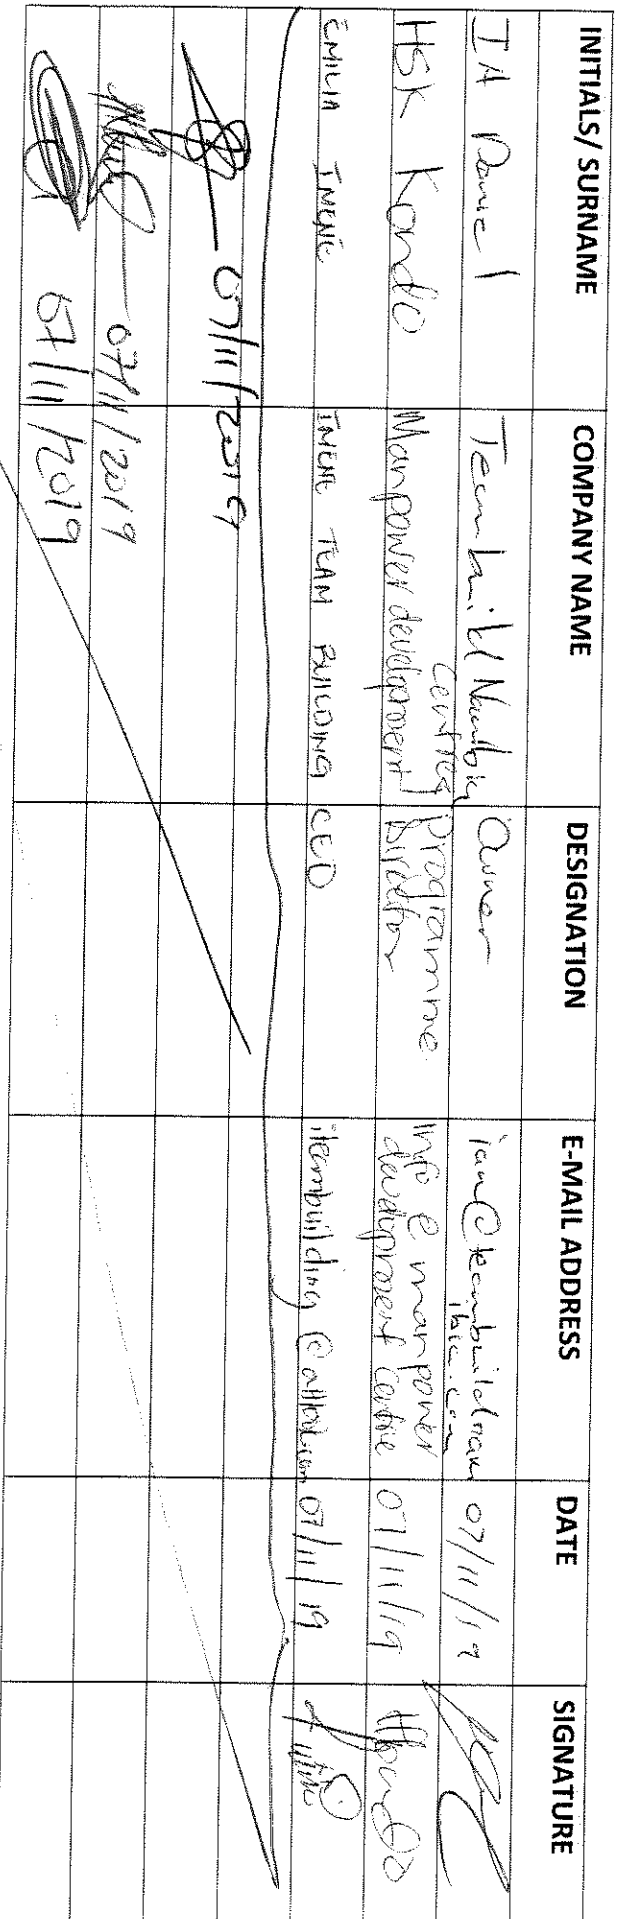 INITIALS/ SURNAME COMPANY NAME DESIGNATION E-MAIL ADDRESS DATE SIGNATURE
IA Daniel Team build Namibia Owner ian@teambuildnam
ibia.com 07/11/19
HSK Kondo Manpower development
Centre Programme
Director Info@manpower
development centre 07/11/19
EMILIA IMENE IMENE TEAM BUILDING CEO iteambuilding@ 07/11/19
07/11/2019
07/11/2019
07/11/2019